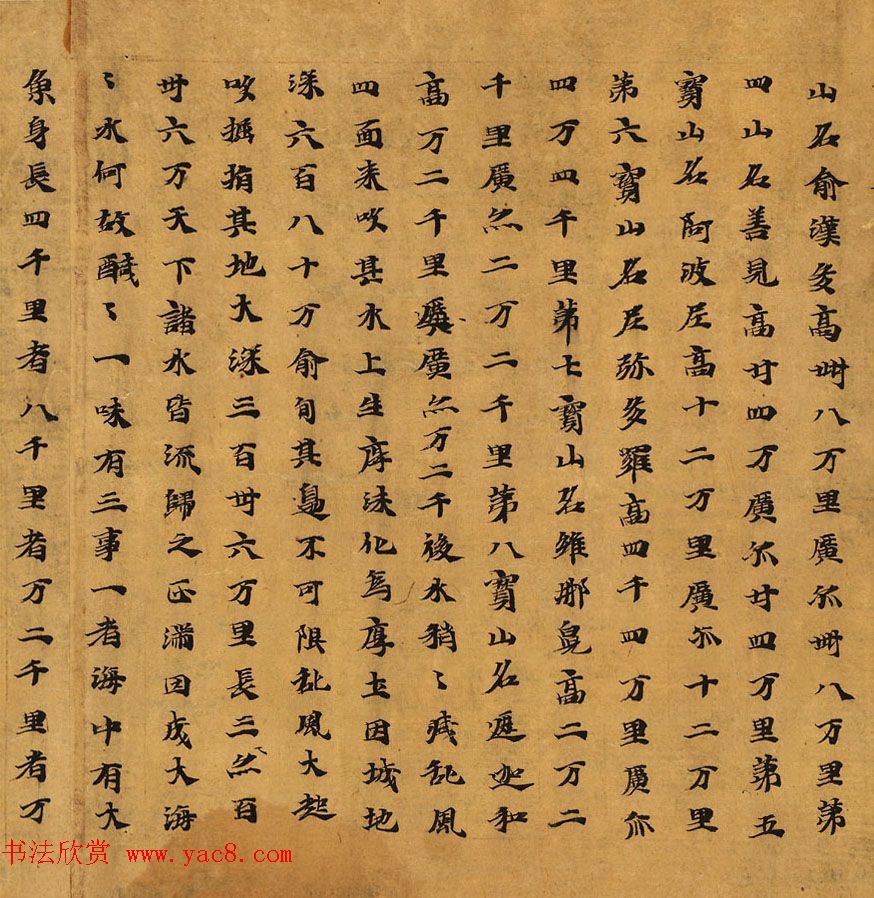 山名俞漢多高卌八万里廣亦卌八万里第
四山名善見高廿四万廣亦廿四万里第五
寶山名阿波尼高十二万里廣亦十二万里
第六寶山名尼弥多羅高四千四万里廣亦
四万四千里第七寶山名維那兜高二万二
千里廣亦二万二千里第八寶山名遮迦和
高万二千里廣亦万二千後水稍〻殘乱風
四面来吹其水上生摩沫化為厚土因城地
深六百八十万俞旬其邊不可限乱風大起
吹掘損其地大深三百卅六万里長三亦百
卅六万天下諸水皆流歸之正滿因成大海
〻水何故醎〻一味有三事一者海中有大
魚身長四千里者八千里者万二千里者万
书法欣赏 www.yac8.com